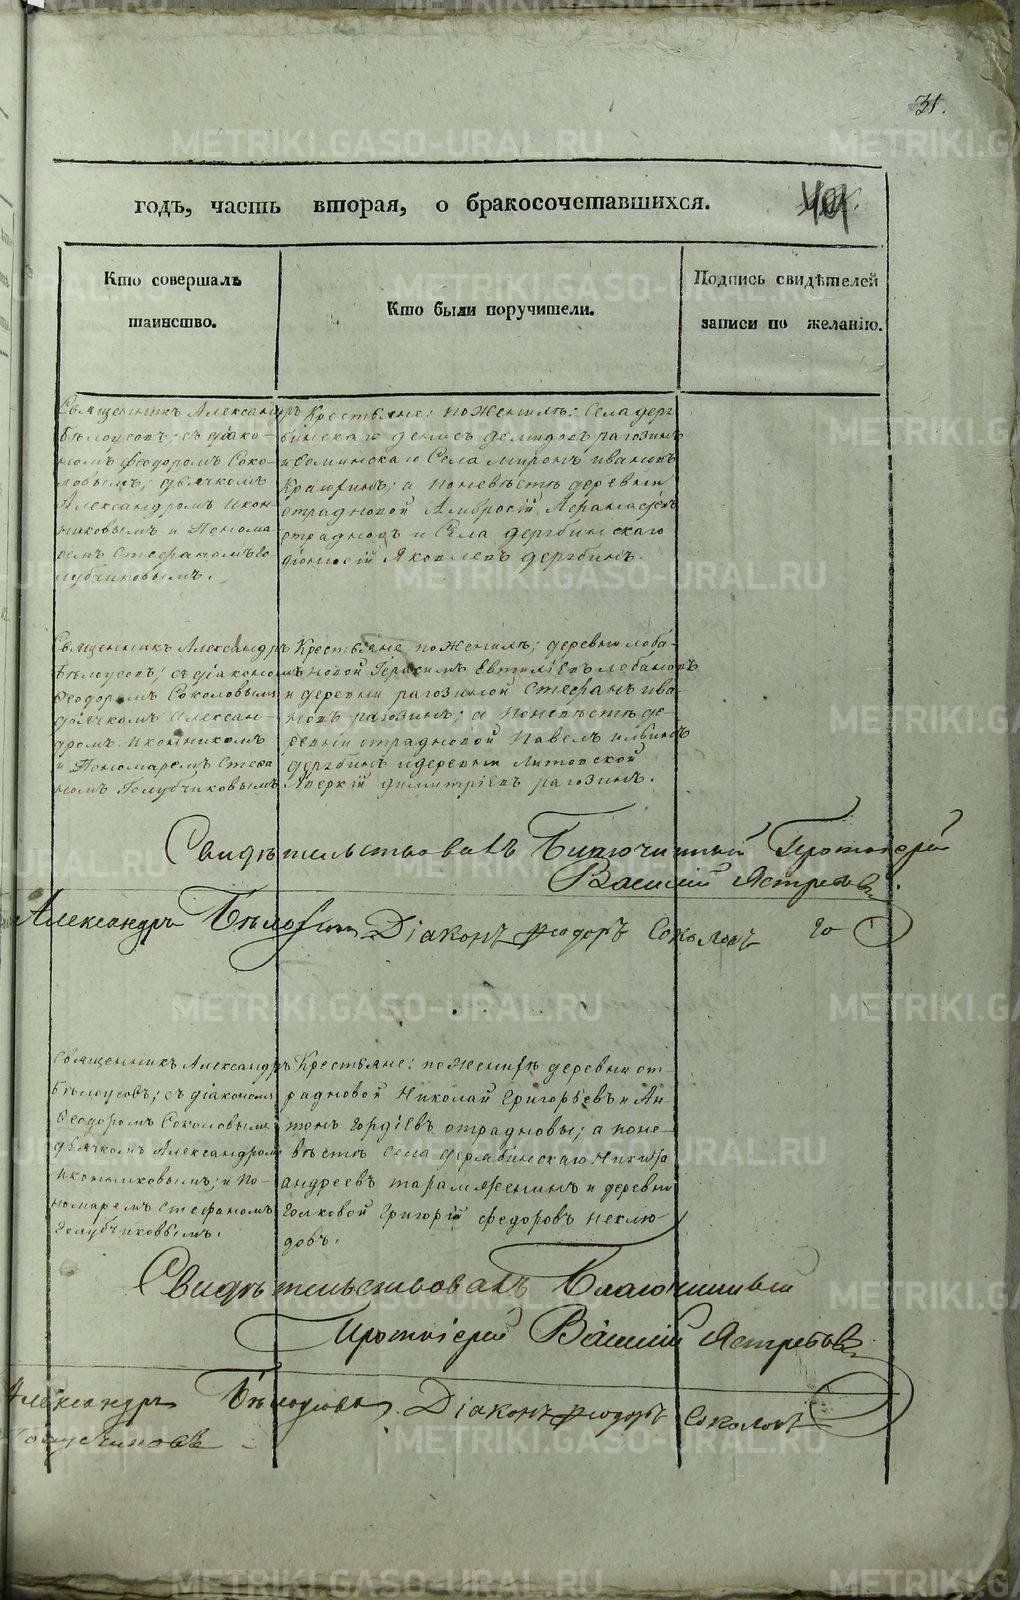 31.
годъ, часть вторая, о бракосочетавшихся.
Кто совершалъ
таинство.
Кто были поручители.
Подпись свидѣтелей
записи по желанію.
Священникъ Александръ
Бѣлоусовъ; съ діако-
номъ Феодоромъ Соко-
ловымъ; дьячкомъ
Александромъ Икон-
никовымъ и Понома
ремъ Стефаномъ Го
лубчиковымъ.
Крестьяне: по женихѣ: Села дерг
бинскаго Денисъ Демидовъ рагозинъ
и Соминскаго Села Миронъ Ивановъ
а по невѣстѣ деревни
отрадновой Амвросій Афанасьевъ
отрадновъ и Села дергбинскаго
Діонисій Яковлевъ дергбинъ.
Священникъ Александръ
Бѣлоусовъ; съ діакономъ
Феодоромъ Соколовымъ
дьячкомъ Алексан-
дромъ Иконникомъ
и Пономаремъ Стефа
номъ Голубчиковымъ
Крестьяне по женихѣ; деревни лоба-
новой Герасимъ Евтихіевъ лобановъ
и деревни рагозиной Стефанъ Ива-
новъ рагозинъ; а по невѣстѣ де-
ревни отрадновой Павелъ Ильинъ
дергбинъ и деревни Литовской
Аверкій Димитріевъ рагозинъ.
Свидѣтельствовалъ Благочинный Протоіерей
Василій Ястребовъ.
Александръ Бѣлоусовъ Діаконъ Феодоръ Соколовъ Го
Священникъ Александръ
Бѣлоусовъ; съ діакономъ
Феодоромъ Соколовымъ
дьячкомъ Александромъ
Иконниковымъ; и По-
номаремъ Стефаномъ
Голубчиковымъ.
Крестьяне: по женихѣ деревни от
радновой Николай Григорьевъ и Ан-
тонъ Гордіевъ отрадновы; а по не-
вѣстѣ Села дерябинскаго Никита
Андреевъ и деревни
Голковой Григорій Федоровъ Неклю
довъ.
Свидѣтельствовалъ Благочинный
Протоіерей Василій Ястребовъ
Александръ Бѣлоусовъ Діаконъ Феодоръ Соколовъ
Голубчиковъ
METRIKI.GASO-URAL.RU